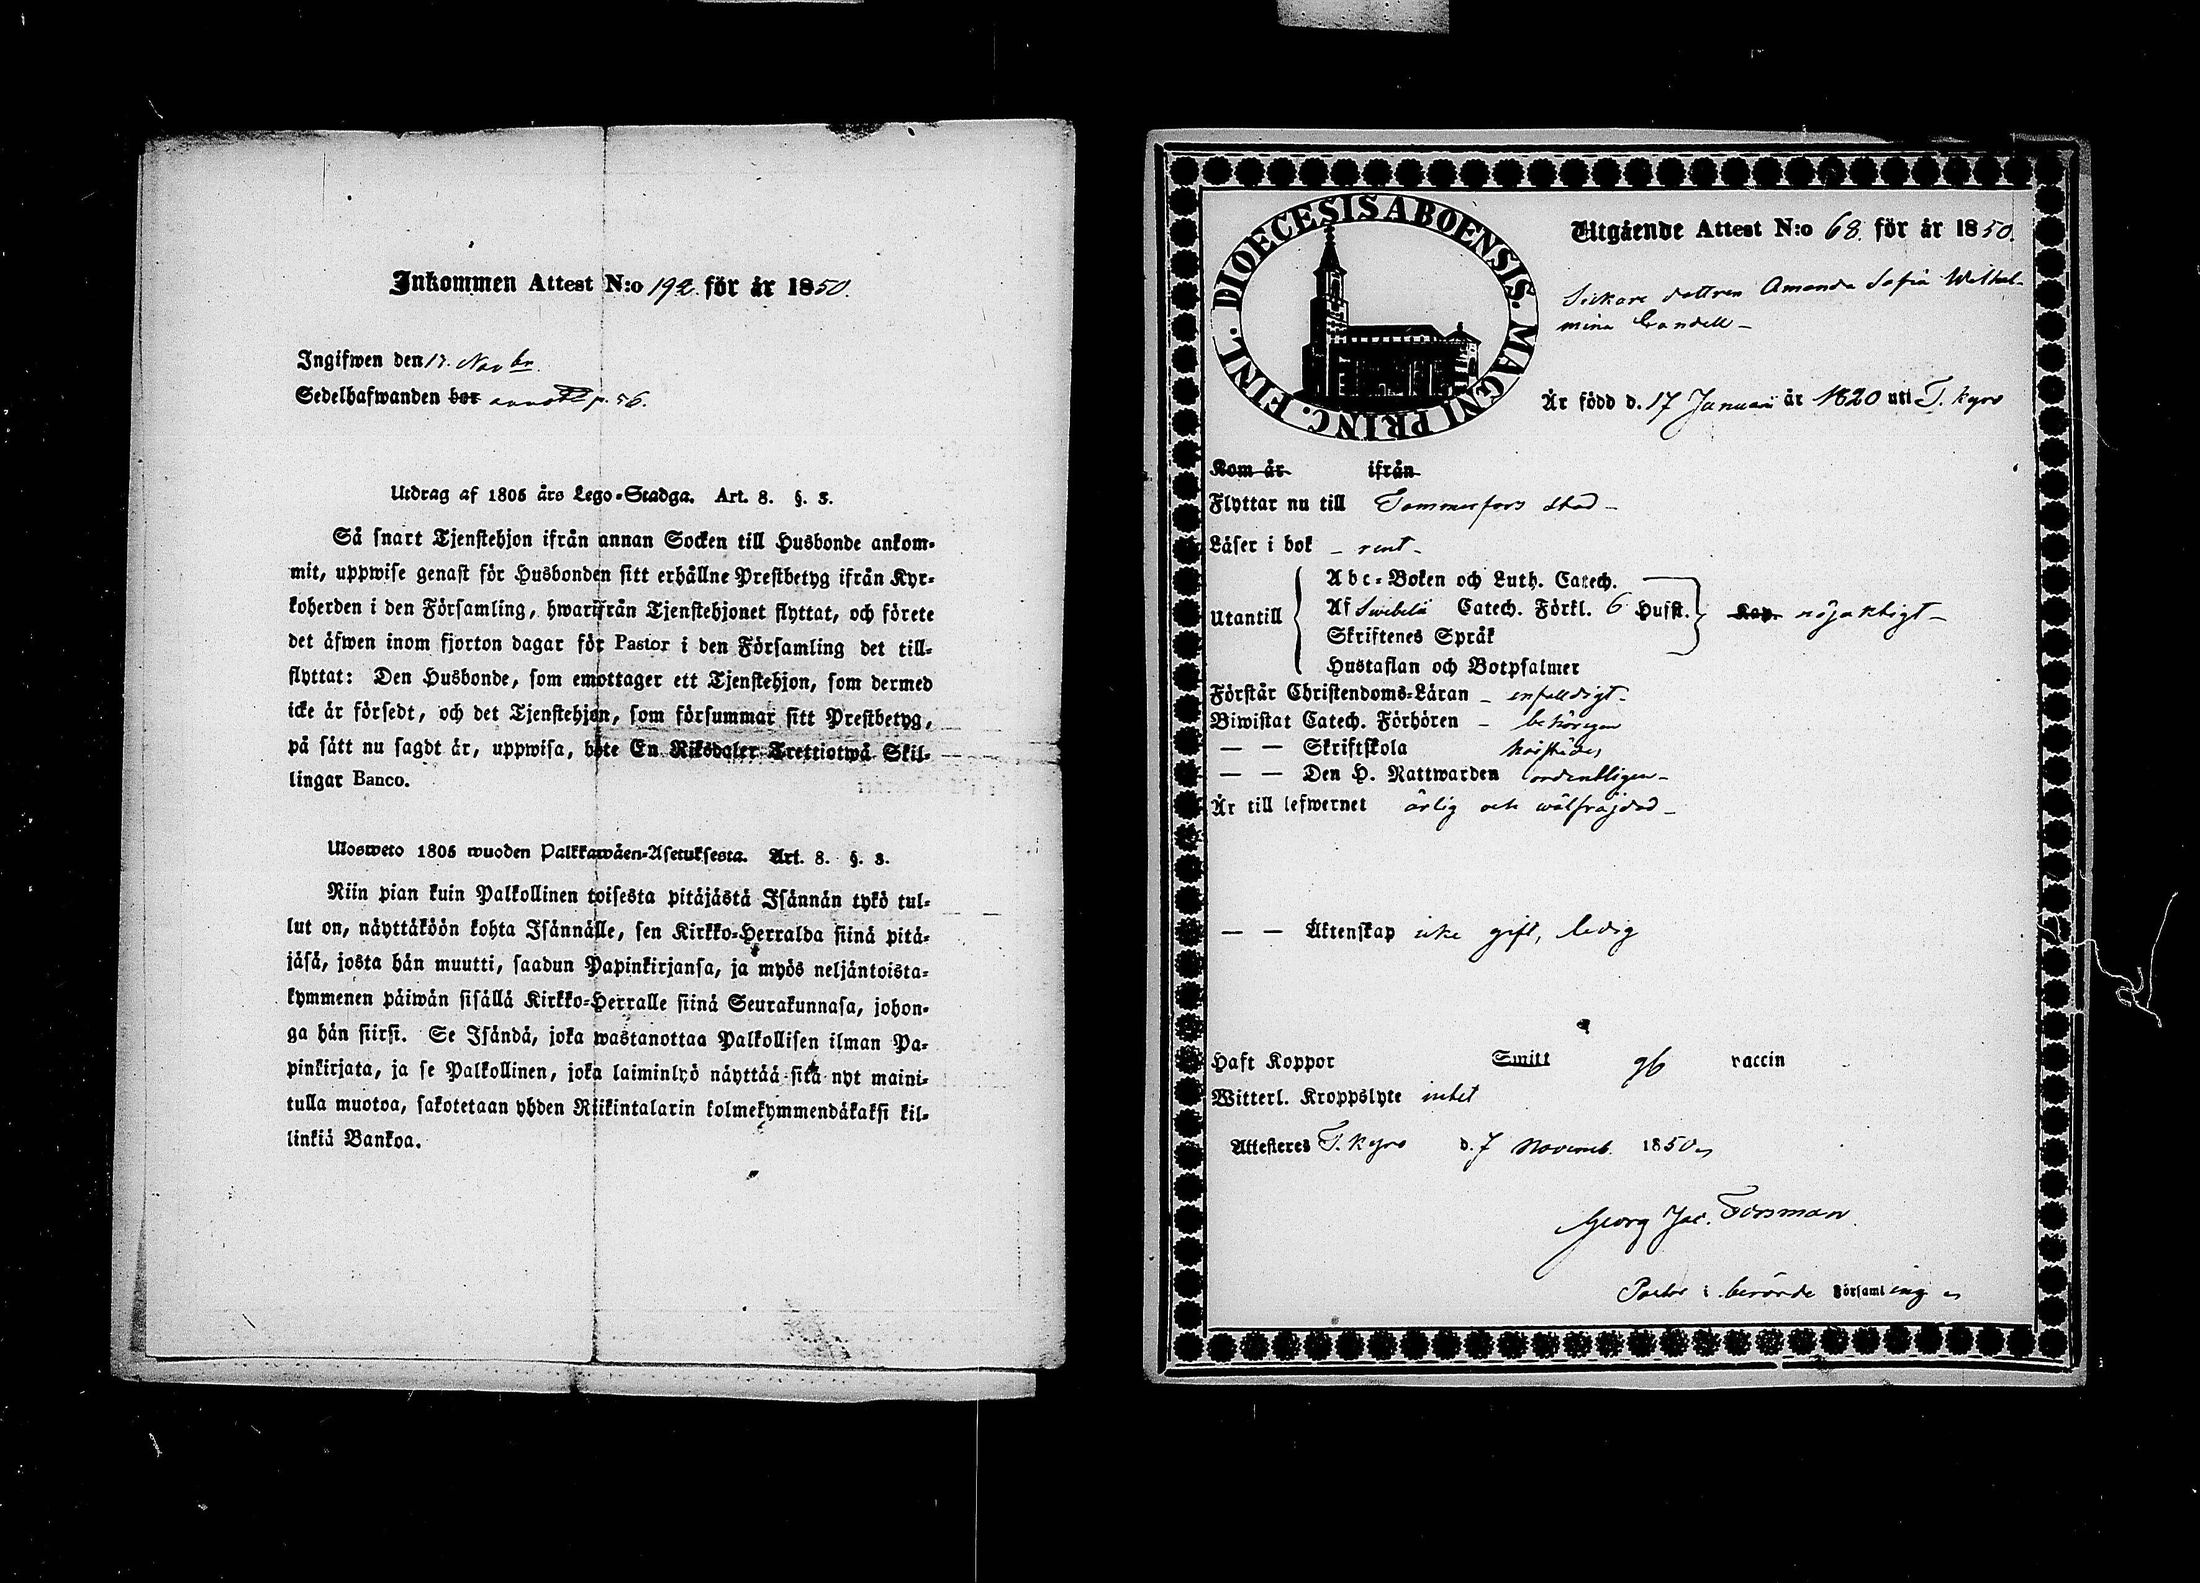 Inkommen Attest N:o 192. för år 1850.
Ingifwen den 17. Novbr.
Sedelhafwanden bor p. 56.
Utdrag af 1805 års Lego-Stadga. Art. 8. §. 3.
Så snart Tjenstehjon ifrån annan Socken till Husbonde ankom-
mit, uppwise genast för Husbonden sitt erhållne Prestbetyg ifrån Kyr-
koherden i den Församling, hwarifrån Tjenstehjonet flyttat, och förete
det äfwen inom fjorton dagar för Pastor i den Församling det till-
flyttat: Den Husbonde, som emottager ett Tjenstehjon, som dermed
icke är försedt, och det Tjenstehjon, som försummar sitt Prestbetyg,
på sätt nu sagdt är, uppwisa, böte En Riksdaler Trettiotwå Skil-
lingar Banco.
Ulosweto 1805 wuoden Palkkawäen-Asetuksesta. Art. 8. §. 3.
Niin pian kuin Palkollinen toisesta pitäjästä Isännän tykö tul-
lut on, näyttäköön kohta Isännälle, sen Kirkko-Herralda siinä pitä-
jäsä, josta hän muutti, saadun Papinkirjansa, ja myös neljäntoista-
kymmenen päiwän sisällä Kirkko-Herralle siinä Seurakunnasa, johon-
ga hän siirsi. Se Isändä, joka wastanottaa Palkollisen ilman Pa-
pinkirjata, ja se Palkollinen, joka laiminlyö näyttää sitä nyt maini-
tulla muotoa, sakotetaan yhden Riikintalarin kolmekymmendäkaksi kil-
linkiä Bankoa.
DIOECESIS ABOENSIS. MAGNI PRINC. FINL.
Utgående Attest N:o 68. för år 1850.
dottren Amanda Sofia Wilhel-
mina
Är född d. 17 Januarii år 1820 uti T. kyro
Kom år ifrån
Flyttar nu till Tammerfors stad –
Läser i bok – rent –
Abc-Boken och Luth. Catech.
Utantill Af Swebelii Catech. Förkl. 6 Husst. Kap. nöjaktigt –
Skriftenes Språk
Hustaflan och Botpsalmer
Förstår Christendoms-Läran – enfaldigt –
Biwistat Catech. Förhören – behörigen
— — Skriftskola
— — Den H. Nattwarden ordentligen –
Är till lefwernet ärlig och wälfräjdad –
— — Äktenskap icke gift, ledig
Haft Koppor Smitt gb vaccin
Witterl. Kroppslyte intet
Attesteres T. kyro d. 7 Novemb. 1850
Georg Jac. Forsman.
Pastor i berörde Församling